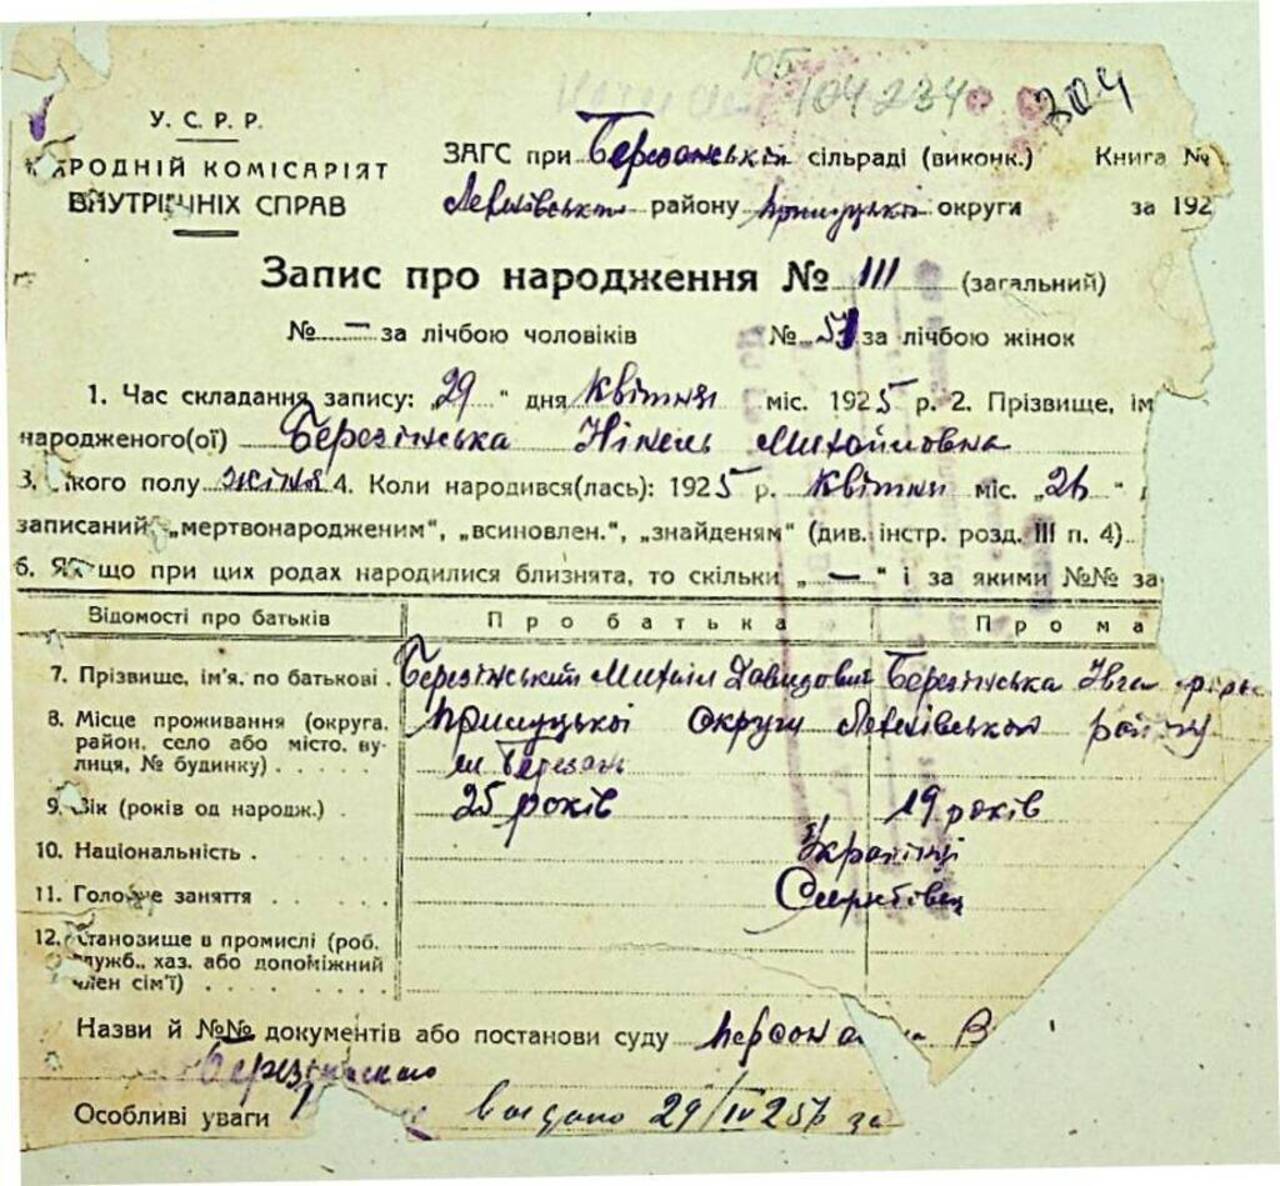 105
104234
304
У. С. Р. Р.
НАРОДНІЙ КОМІСАРІЯТ
ВНУТРІШНІХ СПРАВ
ЗАГС при Березанській сільраді (виконк.) Книга №
району Прилуцької округи за 192
Запис про народження № 111 (загальний)
№ — за лічбою чоловіків № 57 за лічбою жінок
1. Час складання запису: „29" дня квітня міс. 1925 р. 2. Прізвище, ім
народженого(ої) Березінська Нінель Михайловна
3. якого полу жіноч 4. Коли народився(лась): 1925 р. квітня міс. „26"
записаний „мертвонародженим", „всиновлен.", „знайденям" (див. інстр. розд. III п. 4)
6. Якщо при цих родах народилися близнята, то скільки „—" і за якими №№ за
Відомості про батьків Про батька Про ма
7. Прізвище, ім'я, по батькові Березінський Михаіл Давидович Березінська
8. Місце проживання (округа, район, село або місто, вулиця, № будинку) Прилуцької округи району
м Березань
9. Вік (років од народж.) 25 років 19 років
10. Національність Українці
11. Головне заняття
12. Становище в промислі (роб. служб., хаз. або допоміжний член сім'ї)
Назви й №№ документів або постанови суду В
Особливі уваги видано 29/IV 25 р за